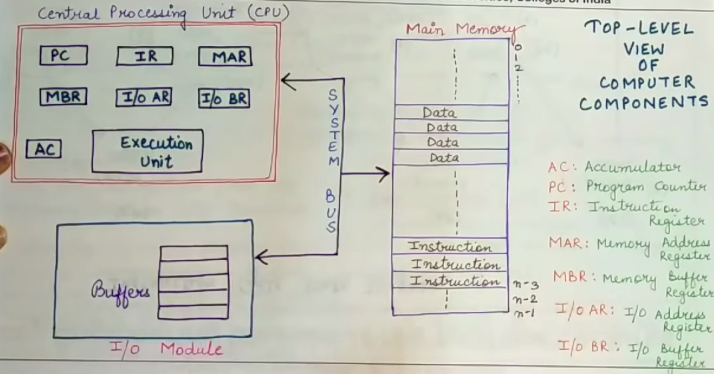 Colleges of India
Central Processing Unit (CPU)
PC
IR
MAR
MBR
I/O AR
I/O BR
AC
Execution
Unit
SYSTEM BUS
Buffers
I/O Module
Main Memory
0
1
2
Data
Data
Data
Data
Instruction
Instruction
Instruction
n-3
n-2
n-1
TOP-LEVEL
VIEW
OF
COMPUTER
COMPONENTS
AC: Accumulator
PC: Program Counter
IR: Instruction
Register
MAR: Memory Address
Register
MBR: Memory Buffer
Register
I/O AR: I/O Address
Register
I/O BR: I/O Buffer
Register